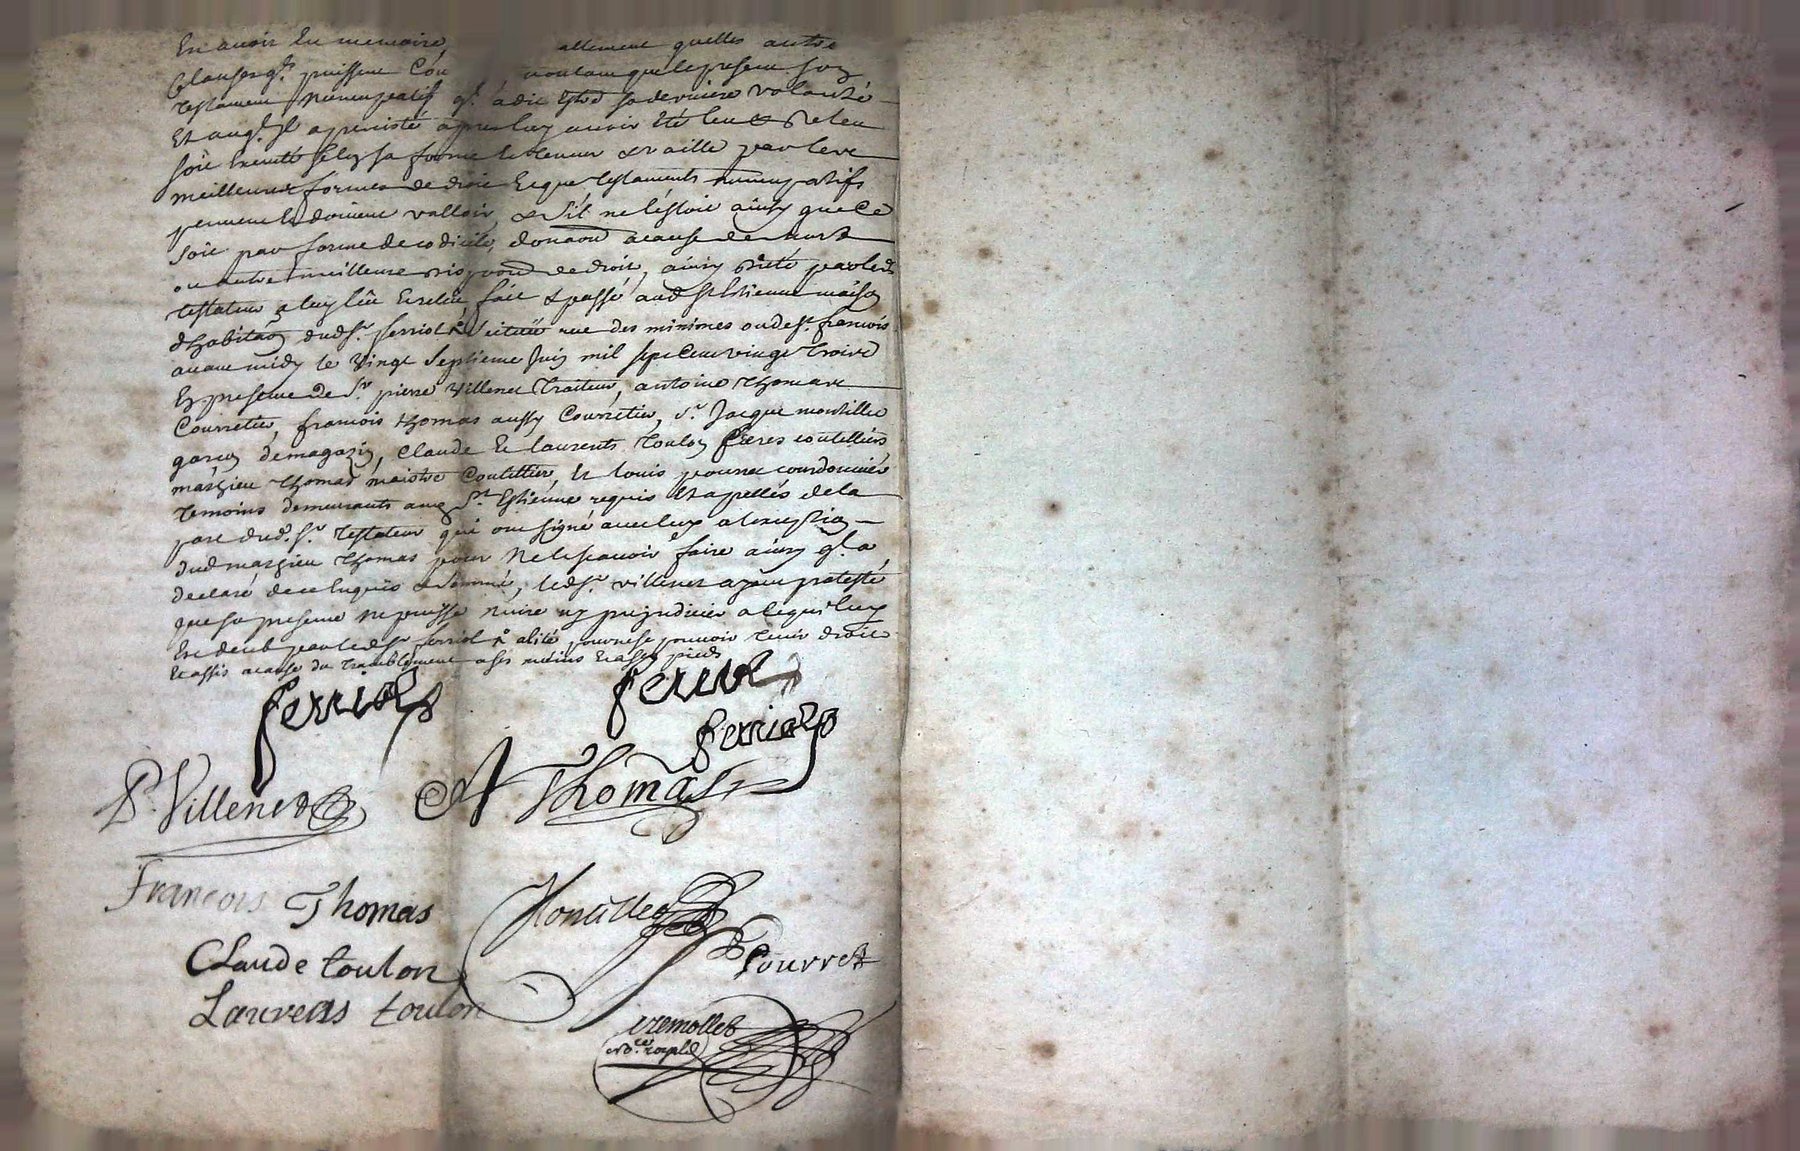 En avoir eu memoire, allement quelles autre
Clauses qu. puissent voulant que le present son
testament nuncupatif qu. a dit estre sa derniere volonté
Et auql. Il a percisté apres luy avoir eté leu & releu
soit executé selon sa forme et teneur & vaille par les
meilleures formes de droit Et que testaments nuncupatifs
peuvent et doivent valloir, & s'il ne lestoit ainsy que Ce
soit par forme de codicile, donaon a cause de mort
ou autre meilleure dispoon de droit, ainsy dicté par led.
testateur a luy lû Et relû fait & passé aud. St. Estienne maison
d'habitaon dud. Sr. ferriol scituée rue des minimes ou de St. francois
avant midy le Vingt Septieme Juin mil sept cent vingt trois
En presence de Sr. pierre Villenet traiteur, antoine thomas
Courretier, francois thomas aussy Courretier, Sr. Jacque montillet
garcon de magazin, claude Et laurents toulon freres coutelliers
mathieu thomas maistre Coutellier, et louis pourret courdonnier
temoins demeurants aud. St. Estienne requis Et apellés de la
part dud. Sr. testateur qui ont signé avec luy a lexception
dud. mathieu thomas pour ne le scavoir faire ainsy ql. a
declaré de ce enquis & sommé, led. Sr. villenet ayant protesté
que sa presence ne puisse nuire ny prejudicier a ce qui luy
Est deub par led. Sr. ferriol alité pour ne se pouvoir tenir droit
Et assis a cause du tramblement a ses mains Et a ses pieds
ferriol ferriol
ferriol
P. Villenet A Thomas
Francois Thomas Montillet
Claude toulon Pourret
Laurens toulon
tremollet
no.re royal